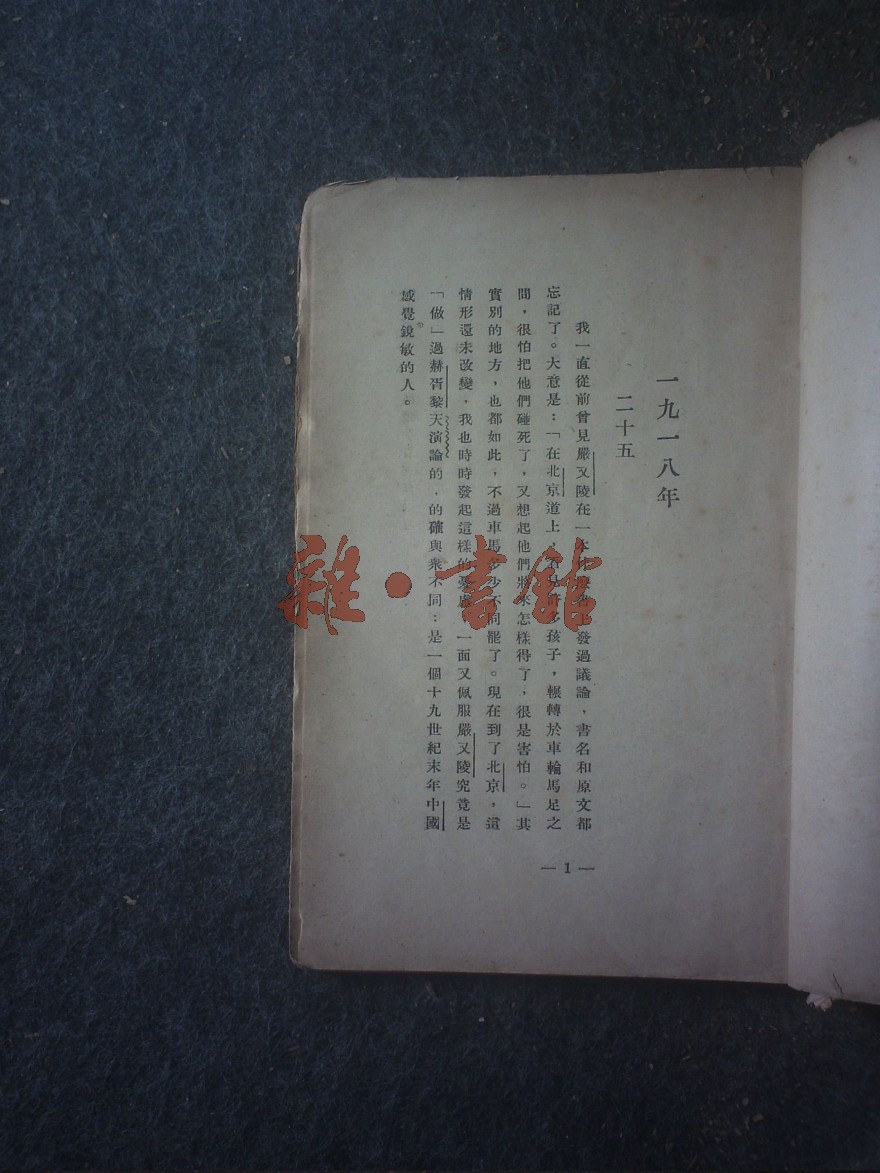 一九一八年
二十五
我一直從前曾見嚴又陵在一本什麼書上發過議論、書名和原文都
忘記了。大意是:「在北京道上,看見許多孩子,輾轉於車輪馬足之
間,很怕把他們碰死了,又想起他們將來怎樣得了,很是害怕。」其
實別的地方,也都如此,不過車馬多少不同罷了。現在到了北京,這
情形還未改變,我也時時發起這樣的憂慮,一面又佩服嚴又陵究竟是
「做」過赫胥黎天演論的,的確與衆不同:是一個十九世紀末年中國
感覺鋭敏的人。
— 1 —
雜·書館